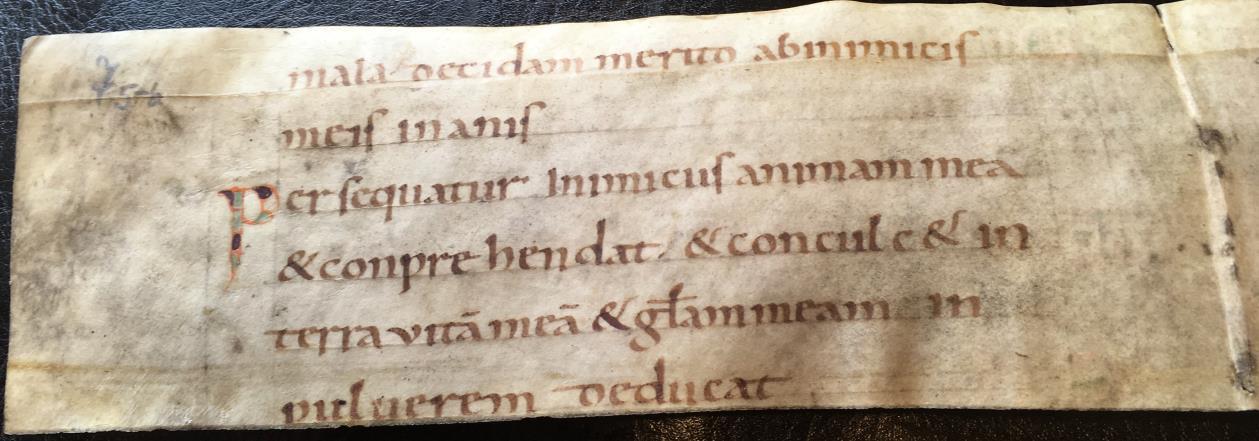 mala decidam merito ab inimicis
meis inanis
Persequatur Inimicus animam mea
& conprehendat / & conculc& in
terra vitā meā & gl̄am meam in
pulverem deducat